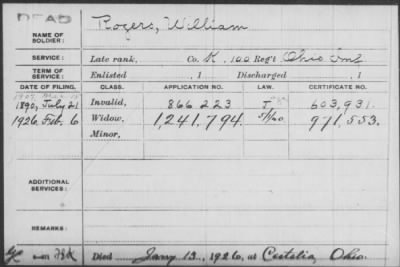 DEAD
NAME OF SOLDIER: Rogers, William
SERVICE: Late rank, Co. K, 100 Reg't Ohio Inf
TERM OF SERVICE: Enlisted , 1 Discharged , 1
DATE OF FILING. CLASS. APPLICATION NO. LAW. CERTIFICATE NO.
1890, July 21 Invalid, 866223 J 603,931.
1926, Feb. 6 Widow, 1,241,794. 971,553.
Minor,
ADDITIONAL SERVICES:
REMARKS:
Died Jany 13, 1926, at Castalia, Ohio.